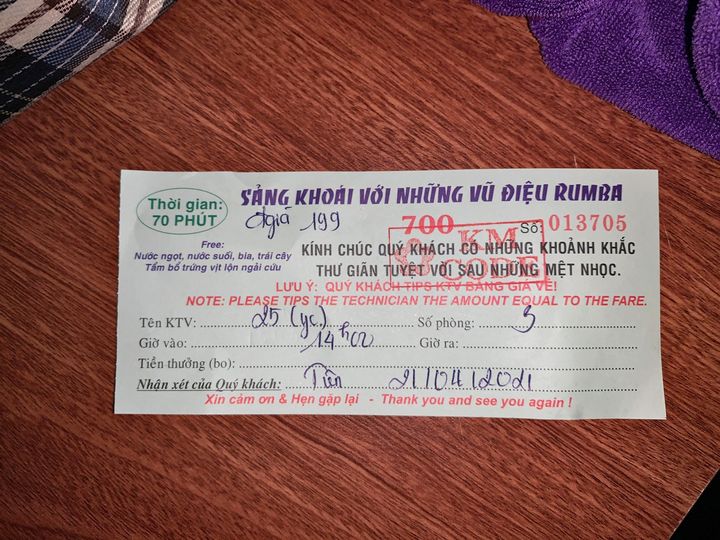 Thời gian:
70 PHÚT
SẢNG KHOÁI VỚI NHỮNG VŨ ĐIỆU RUMBA
giá 199
700
Số: 013705
Free:
Nước ngọt, nước suối, bia, trái cây
Tẩm bổ trứng vịt lộn ngải cứu
KM
CODE
KÍNH CHÚC QUÝ KHÁCH CÓ NHỮNG KHOẢNH KHẮC
THƯ GIÃN TUYỆT VỜI SAU NHỮNG MỆT NHỌC.
LƯU Ý: QUÝ KHÁCH TIPS KTV BẰNG GIÁ VÉ!
NOTE: PLEASE TIPS THE TECHNICIAN THE AMOUNT EQUAL TO THE FARE.
Tên KTV: 25 (yc) Số phòng: 3
Giờ vào: 14h02 Giờ ra:
Tiền thưởng (bo):
Nhận xét của Quý khách: Tiên 21/04/2021
Xin cảm ơn & Hẹn gặp lại - Thank you and see you again !